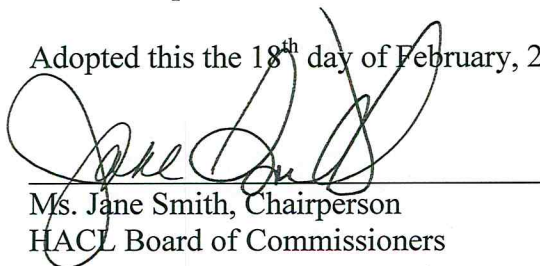 Adopted this the 18th day of February, 2
Jane Smith
Ms. Jane Smith, Chairperson
HACL Board of Commissioners